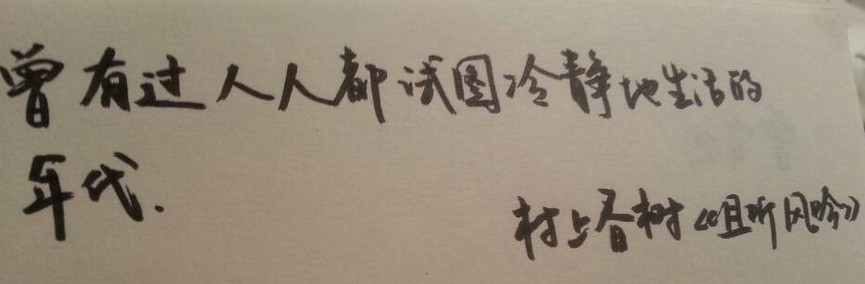 曾有过人人都试图冷静地生活的
年代.
村上春树《且听风吟》